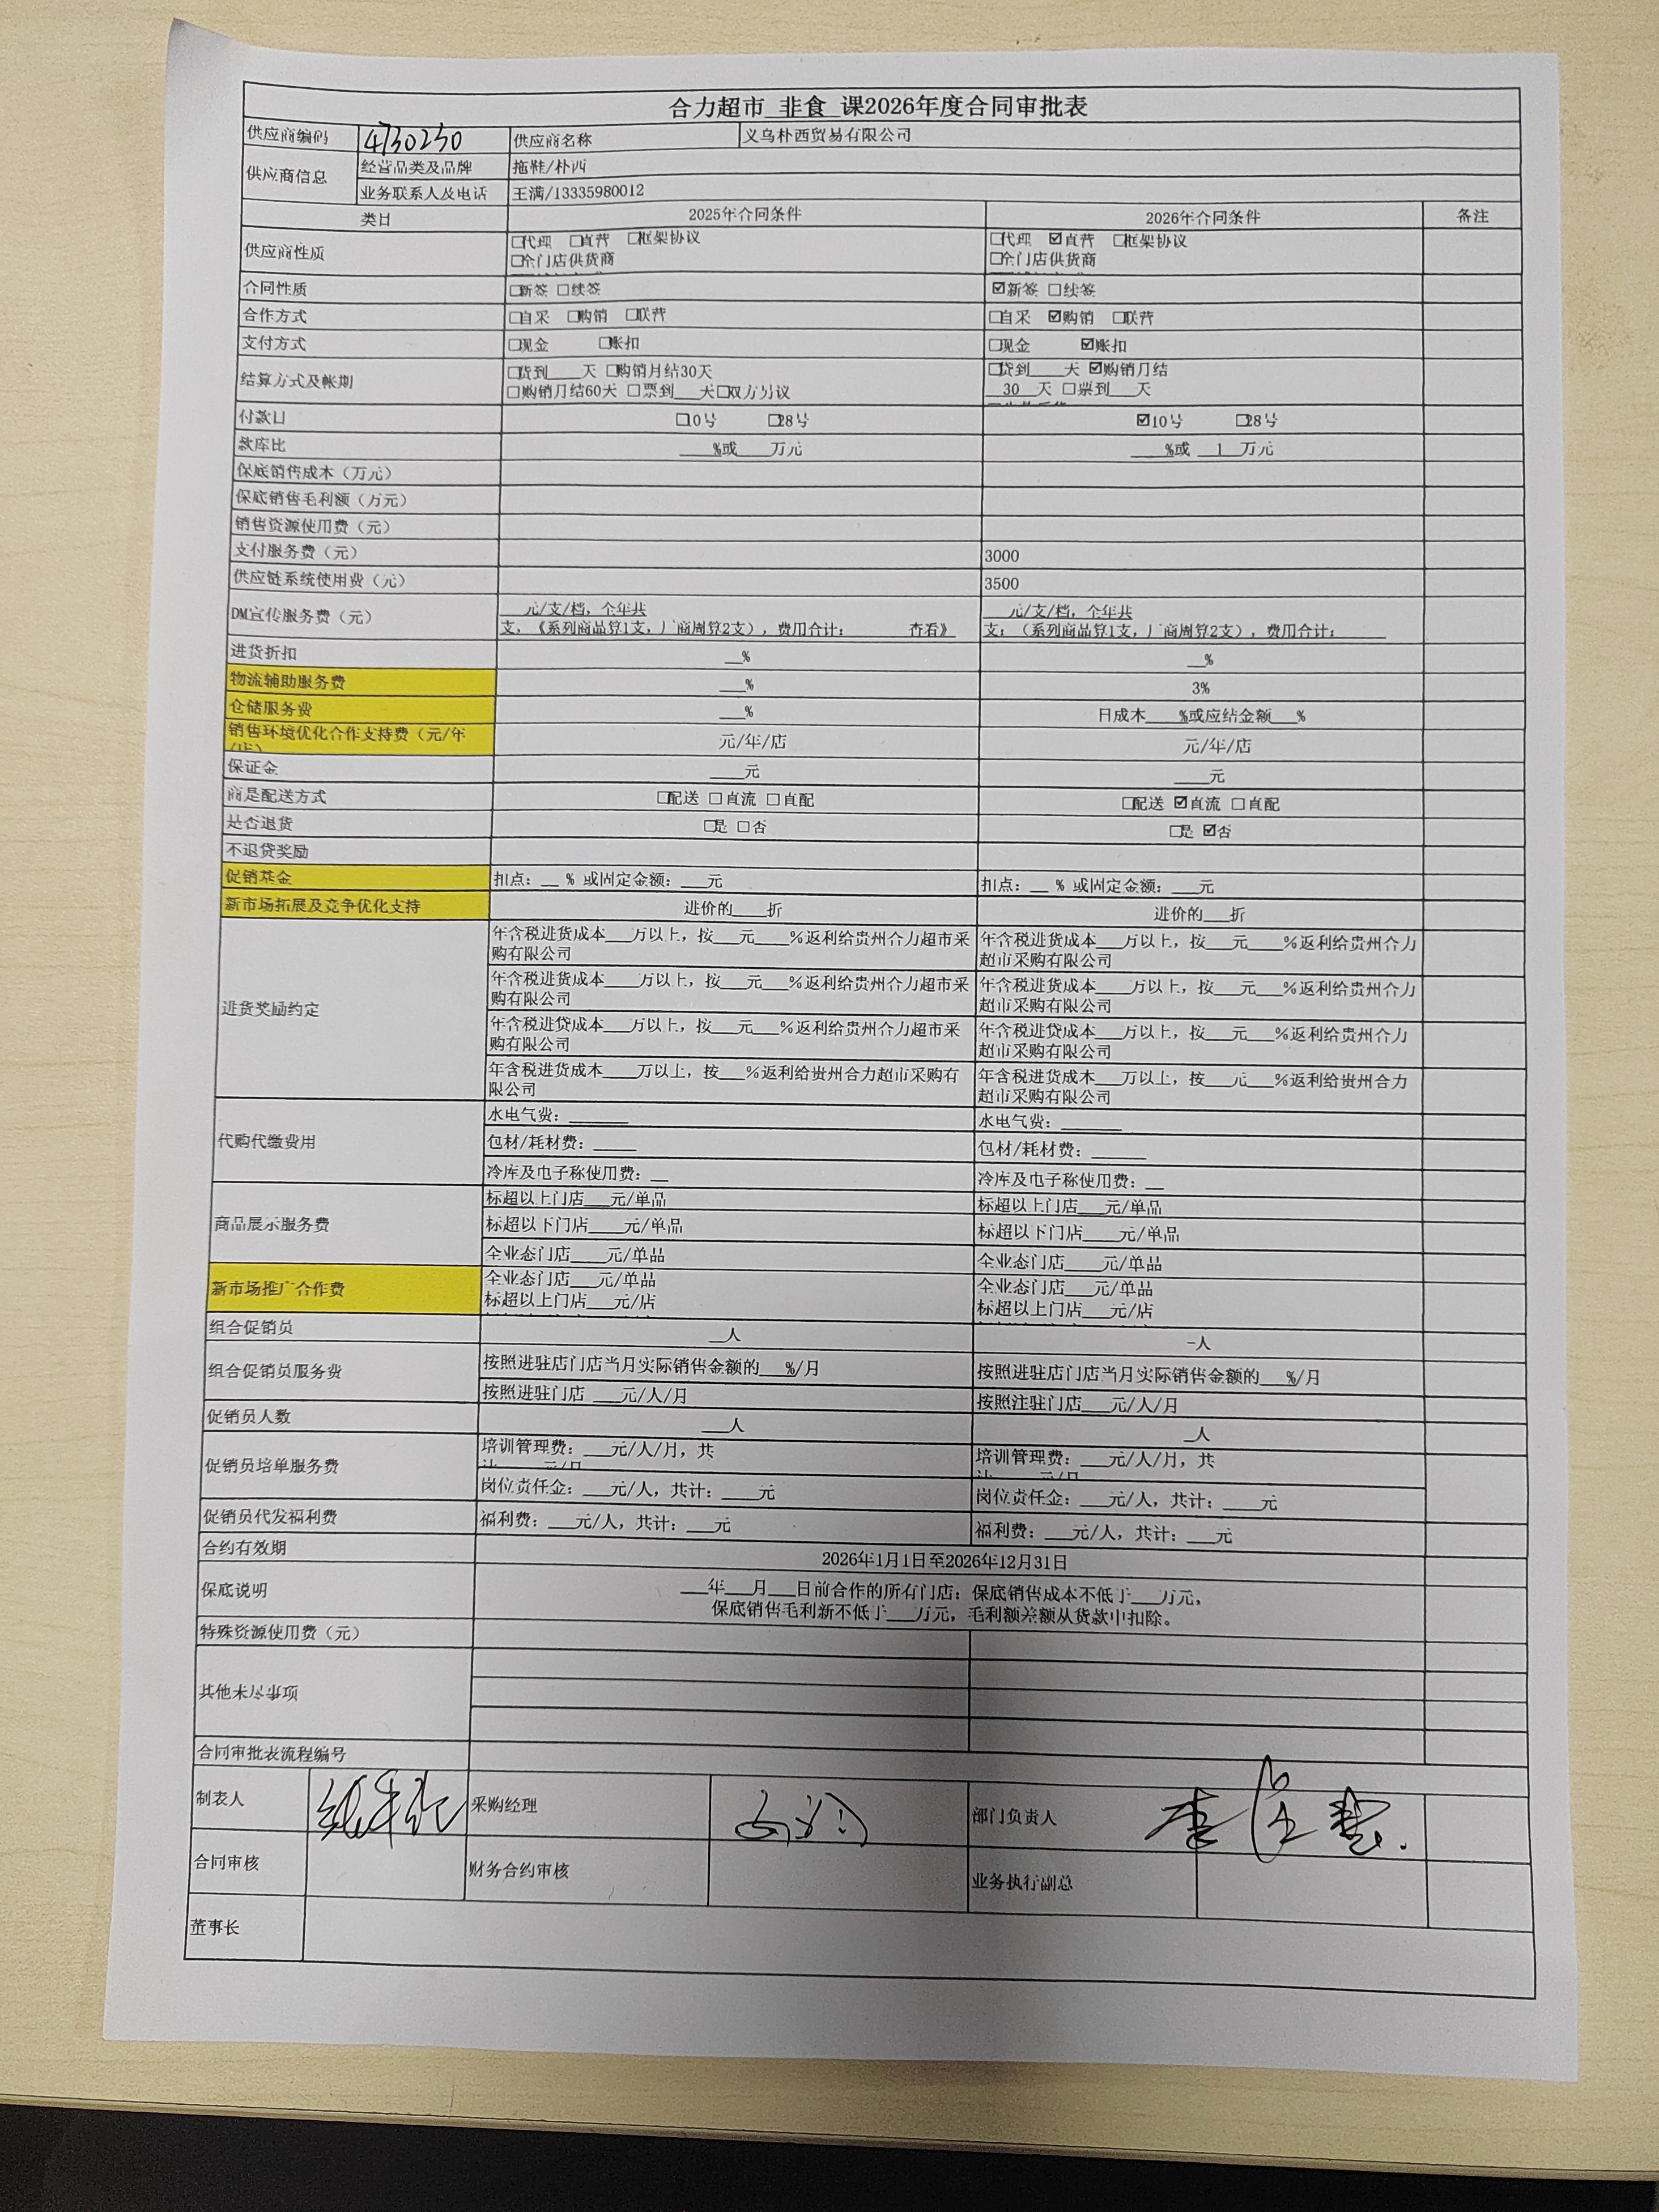 合力超市 非食 课2026年度合同审批表
供应商编码 4730230 供应商名称 义乌朴西贸易有限公司
供应商信息 经营品类及品牌 拖鞋/朴西
业务联系人及电话 王满/13335980012
类目 2025年合同条件 2026年合同条件 备注
供应商性质 □代理 □直营 □框架协议 □代理 ☑直营 □框架协议
□全门店供货商 □全门店供货商
合同性质 □新签 □续签 ☑新签 □续签
合作方式 □自采 □购销 □联营 □自采 ☑购销 □联营
支付方式 □现金 □账扣 □现金 ☑账扣
结算方式及帐期 □货到____天 □购销月结30天 □货到____天 ☑购销月结
□购销月结60天 □票到___天□双方另议 30 天 □票到___天
付款日 □10号 □28号 ☑10号 □28号
款库比 ____%或____万元 ____%或 1 万元
保底销售成本（万元）
保底销售毛利额（万元）
销售资源使用费（元）
支付服务费（元） 3000
供应链系统使用费（元） 3500
DM宣传服务费（元） ___元/支/档，全年共 ___元/支/档，全年共
支，《系列商品算1支，厂商周算2支），费用合计： 查看》 支；（系列商品算1支，厂商周算2支），费用合计：
进货折扣 __% __%
物流辅助服务费 ___% 3%
仓储服务费 ___% 日成本____%或应结金额___%
销售环境优化合作支持费（元/年/店） 元/年/店 元/年/店
保证金 ____元 ____元
商是配送方式 □配送 □直流 □直配 □配送 ☑直流 □直配
是否退货 □是 □否 □是 ☑否
不退货奖励
促销基金 扣点：__ % 或固定金额：___元 扣点：__ % 或固定金额：___元
新市场拓展及竞争优化支持 进价的____折 进价的___折
进货奖励约定 年含税进货成本___万以上，按___元____%返利给贵州合力超市采购有限公司 年含税进货成本___万以上，按___元____%返利给贵州合力超市采购有限公司
年含税进货成本____万以上，按___元___%返利给贵州合力超市采购有限公司 年含税进货成本____万以上，按___元___%返利给贵州合力超市采购有限公司
年含税进货成本___万以上，按___元___%返利给贵州合力超市采购有限公司 年含税进货成本___万以上，按___元___%返利给贵州合力超市采购有限公司
年含税进货成本____万以上，按___%返利给贵州合力超市采购有限公司 年含税进货成本___万以上，按___元___%返利给贵州合力超市采购有限公司
代购代缴费用 水电气费：_______ 水电气费：_______
包材/耗材费：_____ 包材/耗材费：______
冷库及电子称使用费：__ 冷库及电子称使用费：__
商品展示服务费 标超以上门店___元/单品 标超以上门店___元/单品
标超以下门店____元/单品 标超以下门店____元/单品
全业态门店____元/单品 全业态门店____元/单品
新市场推广合作费 全业态门店___元/单品 全业态门店___元/单品
标超以上门店___元/店 标超以上门店___元/店
组合促销员 __人 -人
组合促销员服务费 按照进驻店门店当月实际销售金额的___%/月 按照进驻店门店当月实际销售金额的___%/月
按照进驻门店 ___元/人/月 按照注驻门店___元/人/月
促销员人数 ___人 _人
促销员培单服务费 培训管理费：___元/人/月，共 培训管理费：___元/人/月，共
岗位责任金：___元/人，共计：____元 岗位责任金：___元/人，共计：____元
促销员代发福利费 福利费：___元/人，共计：___元 福利费：___元/人，共计：___元
合约有效期 2026年1月1日至2026年12月31日
保底说明 ___年___月___日前合作的所有门店；保底销售成本不低于___万元，
保底销售毛利新不低于___万元，毛利额差额从货款中扣除。
特殊资源使用费（元）
其他未尽事项
合同审批表流程编号
制表人 采购经理 部门负责人
合同审核 财务合约审核 业务执行副总
董事长